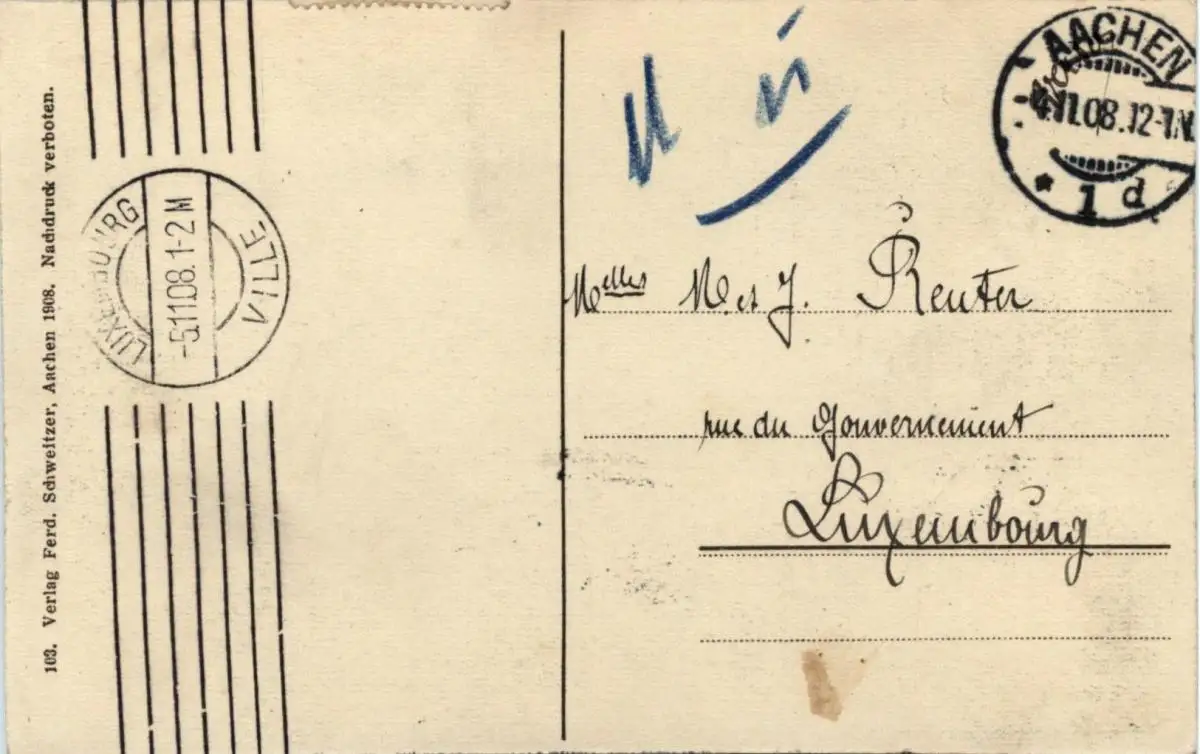 103. Verlag Ferd. Schweitzer, Aachen 1908. Nachdruck verboten.
LUXEMBOURG
VILLE
-5.11.08.1-2 M
AACHEN
4.11.08.12-1.N
* 1 d
Melles M. et J. Reuter
rue du Gouvernement
Luxembourg